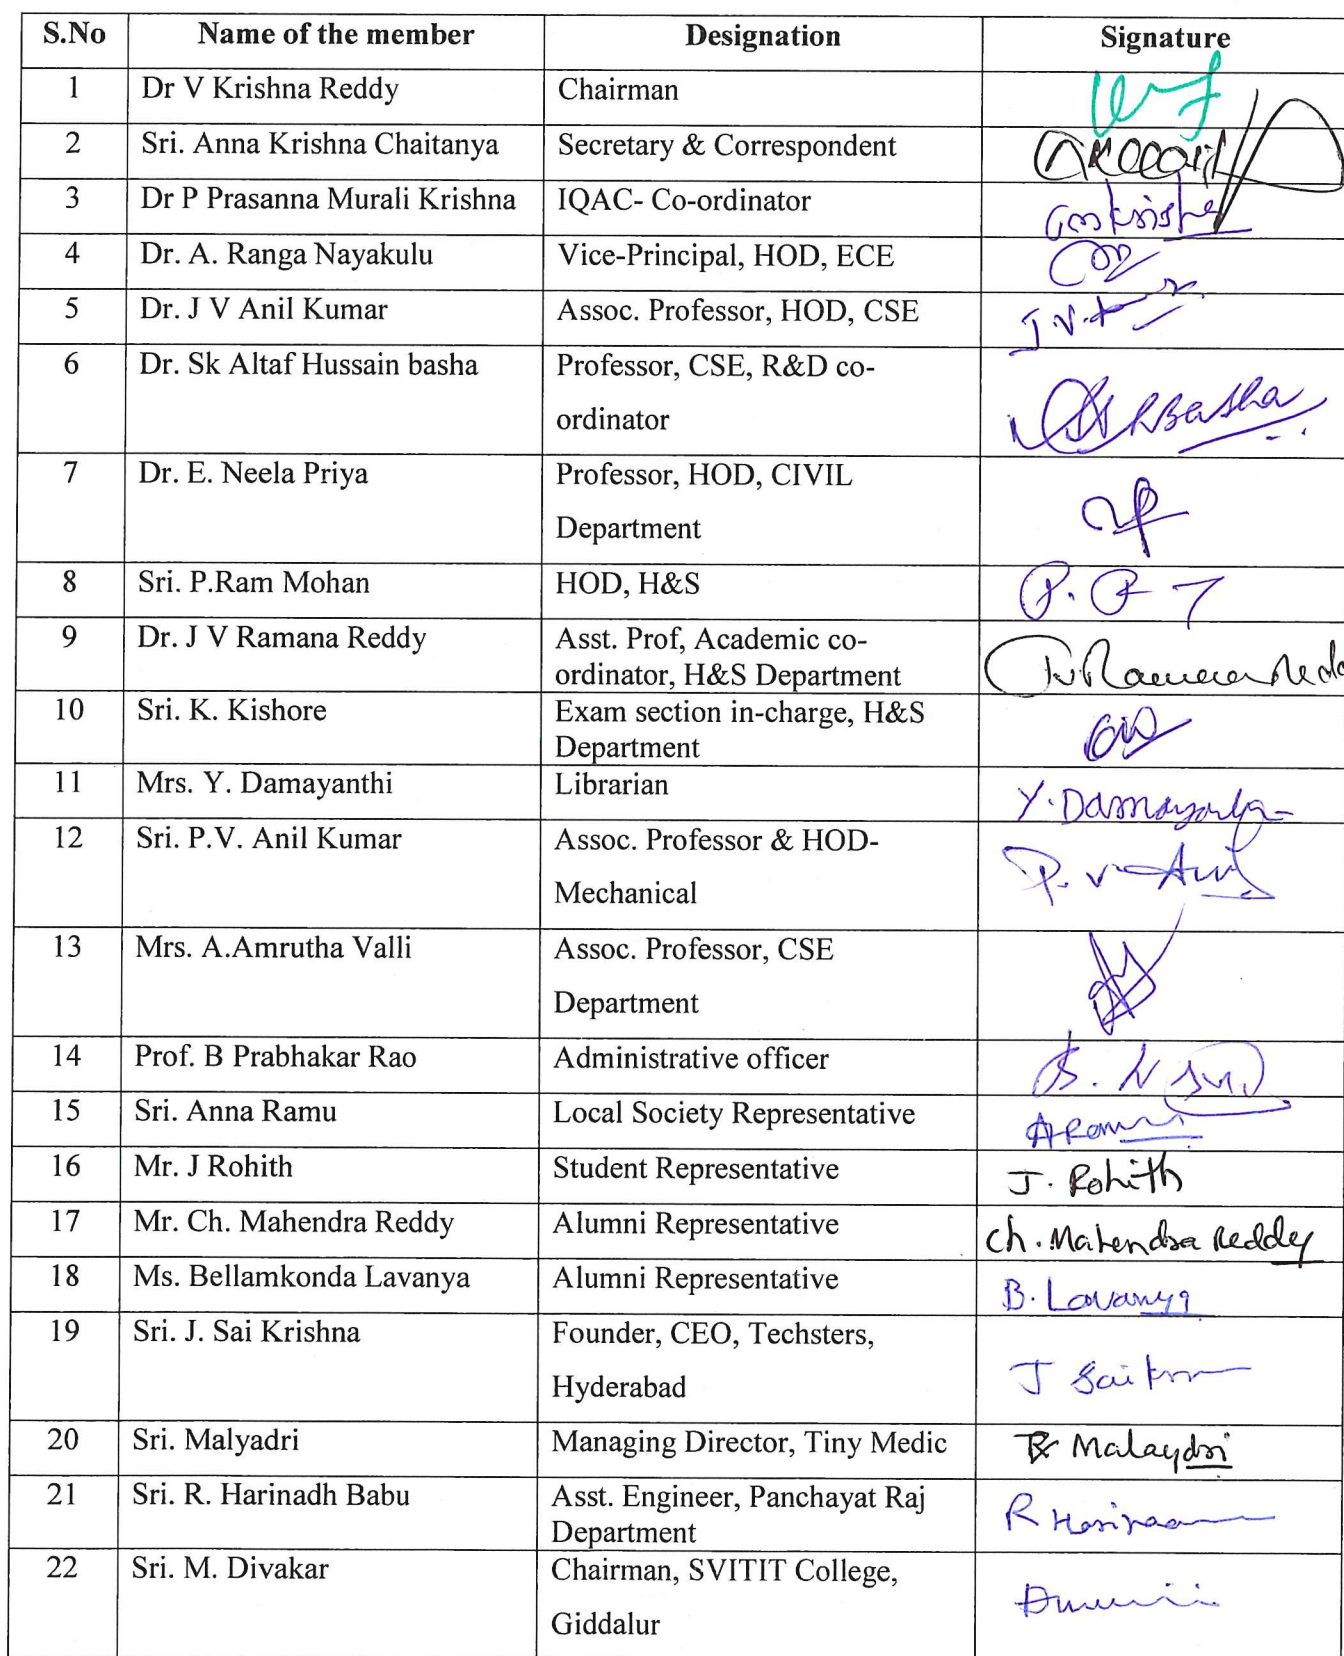 S.No Name of the member Designation Signature
1 Dr V Krishna Reddy Chairman
2 Sri. Anna Krishna Chaitanya Secretary & Correspondent
3 Dr P Prasanna Murali Krishna IQAC- Co-ordinator
4 Dr. A. Ranga Nayakulu Vice-Principal, HOD, ECE
5 Dr. J V Anil Kumar Assoc. Professor, HOD, CSE J.V.
6 Dr. Sk Altaf Hussain basha Professor, CSE, R&D co-
ordinator Basha
7 Dr. E. Neela Priya Professor, HOD, CIVIL
Department
8 Sri. P.Ram Mohan HOD, H&S P. R
9 Dr. J V Ramana Reddy Asst. Prof, Academic co-
ordinator, H&S Department
10 Sri. K. Kishore Exam section in-charge, H&S
Department
11 Mrs. Y. Damayanthi Librarian Y.
12 Sri. P.V. Anil Kumar Assoc. Professor & HOD-
Mechanical P. V Anil
13 Mrs. A.Amrutha Valli Assoc. Professor, CSE
Department
14 Prof. B Prabhakar Rao Administrative officer
15 Sri. Anna Ramu Local Society Representative
16 Mr. J Rohith Student Representative J. Rohith
17 Mr. Ch. Mahendra Reddy Alumni Representative Ch. Mahendra Reddy
18 Ms. Bellamkonda Lavanya Alumni Representative B. Lavanya
19 Sri. J. Sai Krishna Founder, CEO, Techsters,
Hyderabad J
20 Sri. Malyadri Managing Director, Tiny Medic Malaydri
21 Sri. R. Harinadh Babu Asst. Engineer, Panchayat Raj
Department R
22 Sri. M. Divakar Chairman, SVITIT College,
Giddalur